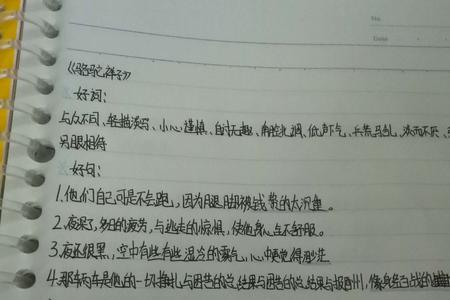 No.
Date
《骆驼祥子》
好词：
与众不同、轻描淡写、小心谨慎、自讨无趣、南腔北调、低声下气、兵荒马乱、
另眼相待
好句：
1.他们自己可是不会跑，因为腿脚被钱赘的太沉重。
2.夜深了，多日的疲劳，与逃走的惊惧，使他身心全不舒服。
3.夜还很黑，空中有些湿冷的雾气，心中更觉得渺茫
4.那辆车是他的一切挣扎与困苦的总结果与报酬，像身经百战的